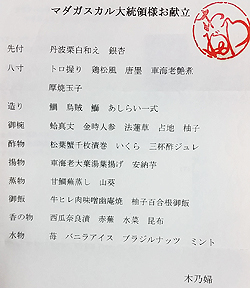 マダガスカル大統領様お献立
先付 丹波栗白和え 銀杏
八寸 トロ握り 鶏松風 唐墨 車海老艶煮
厚焼玉子
造り 鯛 烏賊 鰤 あしらい一式
御椀 蛤真丈 金時人参 法蓮草 占地 柚子
酢物 松葉蟹千枚漬巻 いくら 三杯酢ジュレ
揚物 車海老大葉湯葉揚げ 安納芋
蒸物 甘鯛蕪蒸し 山葵
御飯 牛ヒレ肉味噌幽庵焼 柚子百合根御飯
香の物 西瓜奈良漬 赤蕪 水菜 昆布
水物 苺 バニラアイス ブラジルナッツ ミント
木乃婦